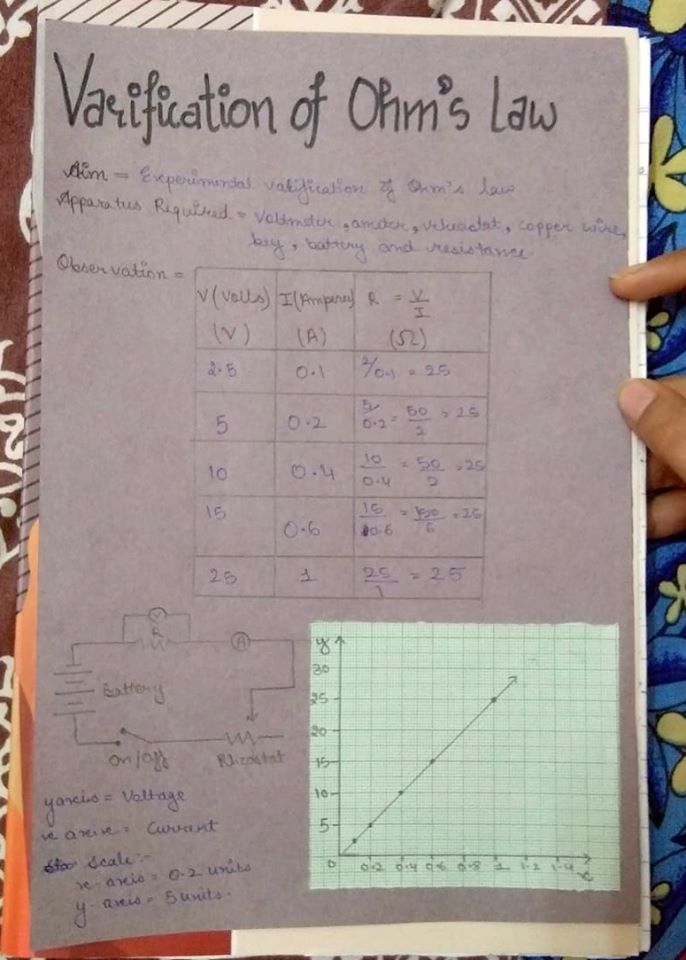 Varification of Ohm's Law
Aim = Experimental varification of Ohm's law
Apparatus Required = Voltmeter, ameter, rheostat, copper wire,
key, battery and resistance.
Observation =
V (Volts) I (Ampere) R = V/I
(V) (A) (Ω)
2.5 0.1 2/0.1 = 25
5 0.2 5/0.2 = 50/2 = 25
10 0.4 10/0.4 = 50/2 = 25
15 0.6 15/0.6 = 150/6 = 25
25 1 25/1 = 25
V
R
A
Battery
On/Off
Rheostat
y axis = Voltage
x axis = Current
Scale:-
x-axis = 0.2 units
y-axis = 5 units.
y
30
25
20
15
10
5
0 0.2 0.4 0.6 0.8 1 1.2 1.4 x